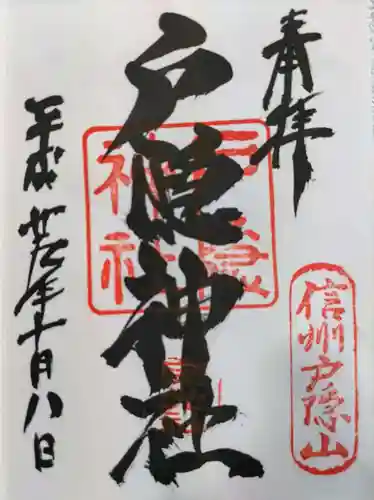 奉拝
信州戸隠山
戸隠神社
戸隠神社
平成 年十月八日